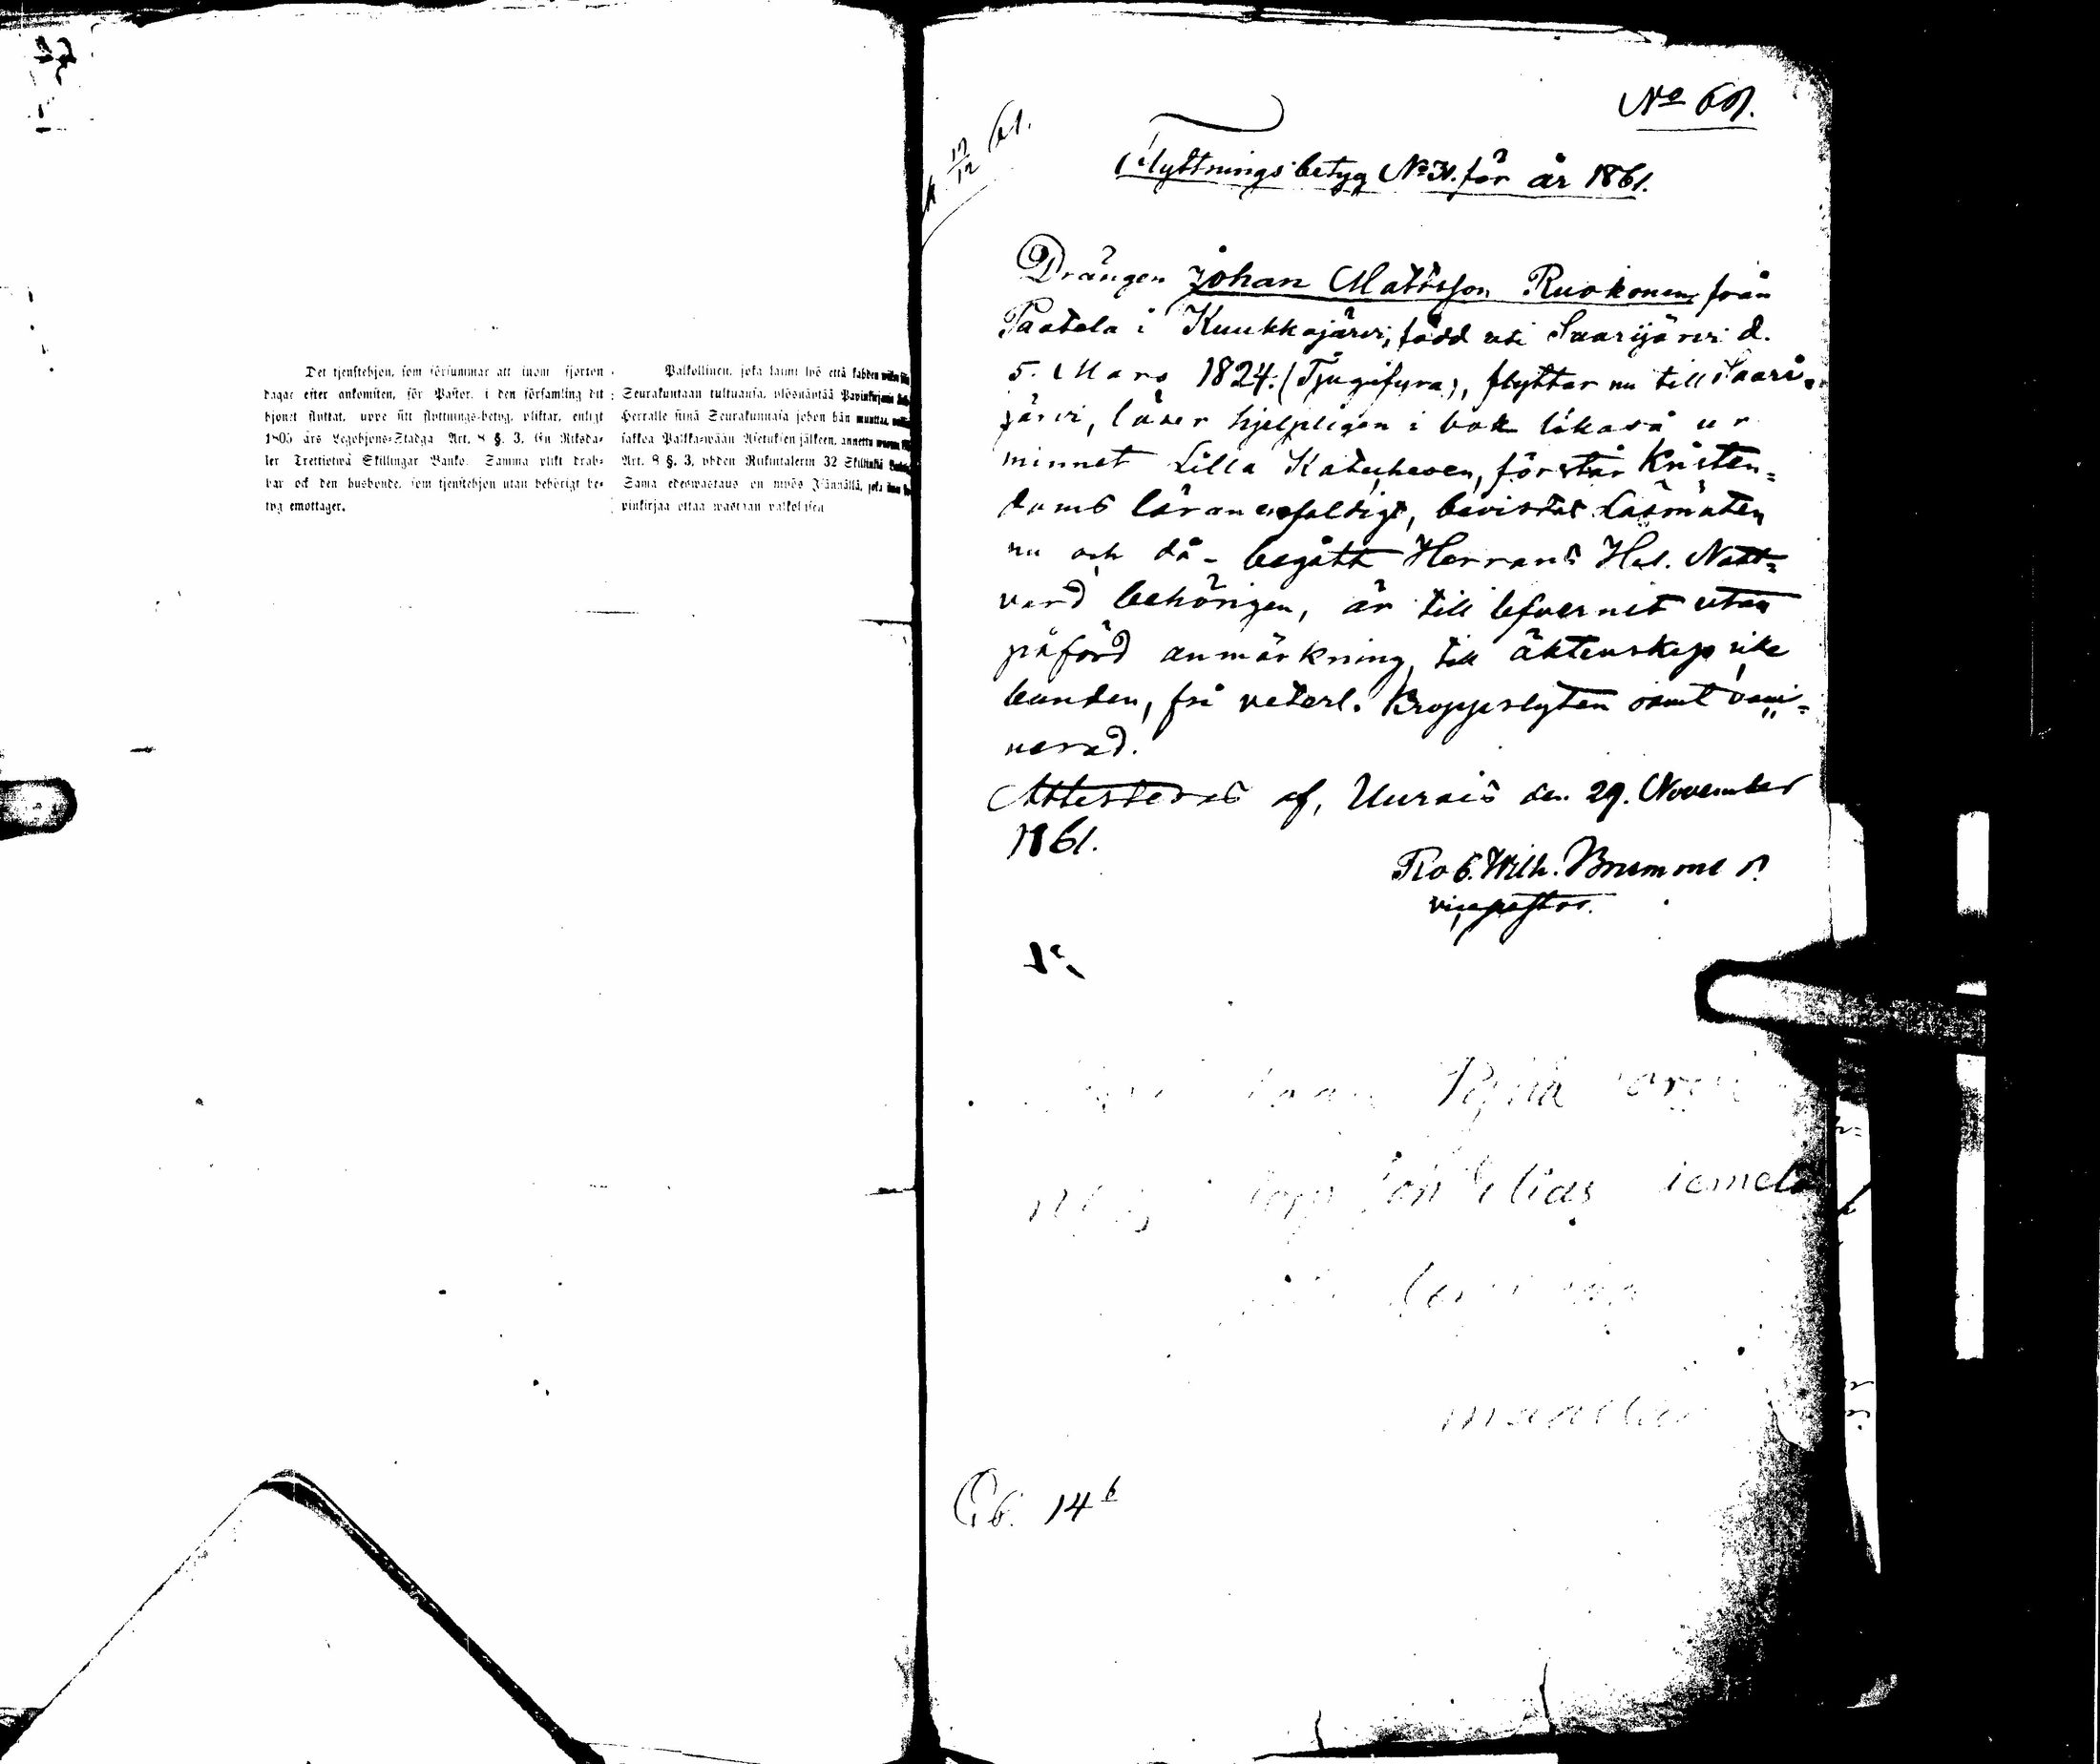 Det tjenstehjon, som försummar att inom fjorton
dagar efter ankomsten, för Pastor, i den församling dit
hjonet flyttat, uppe sitt flyttnings-betyg, pliktar, enligt
1805 års Legohjons-Stadga Art. 8 §. 3. En Riksda-
ler Trettiotwå Skillingar Banko. Samma plikt drab-
bar ock den husbonde, som tjenstehjon utan behörigt be-
tyg emottager.
Palkollinen, joka laimi lyö että kahden
Seurakuntaan tultuansa, ylösnäytää Papinkirjansa
Herralle siinä Seurakunnasa johon hän muuttaa,
sakkoa Palkka-wään Asetuksen jälkeen, annettu
Art. 8 §. 3, yhden Riikintalerin 32 Skillinkiä
Sama edeswastaus on myös Isännällä, joka
pinkirjaa ottaa wastaan palkollisen
No 61.
17/12 61.
Flyttningsbetyg No 31. för år 1861.
Drängen Johan Mattsson Ruokonen från
Paatela i Kuukkajärvi, född uti Saarijärvi d.
5. Mars 1824. (Tjugufyra), flyttar nu till Saari-
järvi, läser hjelpligen i bok likaså ur
minnet Lilla Katechesen, förstår Kristen-
doms läran enfaldigt, bevistat Läsmöten
nu och då - begått Herrans Hel. Natt-
vard behörigen, är till lefvernet utan
påförd anmärkning, till äktenskap icke
bunden, fri veterl. Kroppslyten samt vacci-
nerad.
Attesteras af, Uurais den 29. November
1861.
Rob. Wilh. Brummer
vicepastor.
Elias
14 b